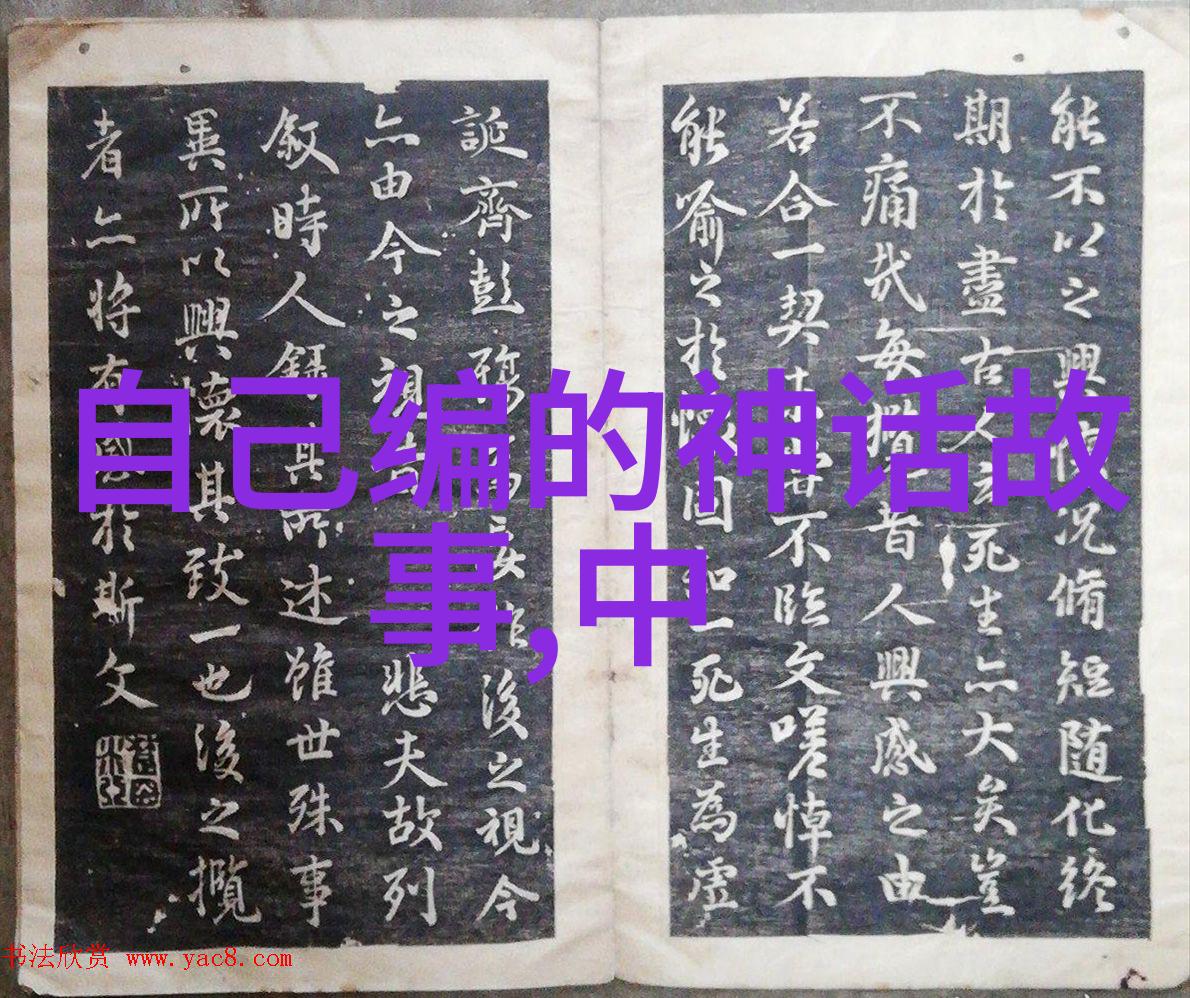 能不以之興懷況脩短随化終
期於盡古人云死生亦大矣豈
不痛哉每攬昔人興感之由
若合一契未嘗不臨文嗟悼不
能喻之於懷固知一死生為虛
誕齊彭殤為妄作後之視今
亦由今之視昔悲夫故列
叙時人録其所述雖世殊事
異所以興懷其致一也後之攬
者亦将有感於斯文
自己编的神话故
事,中
书法欣赏 www.yac8.com